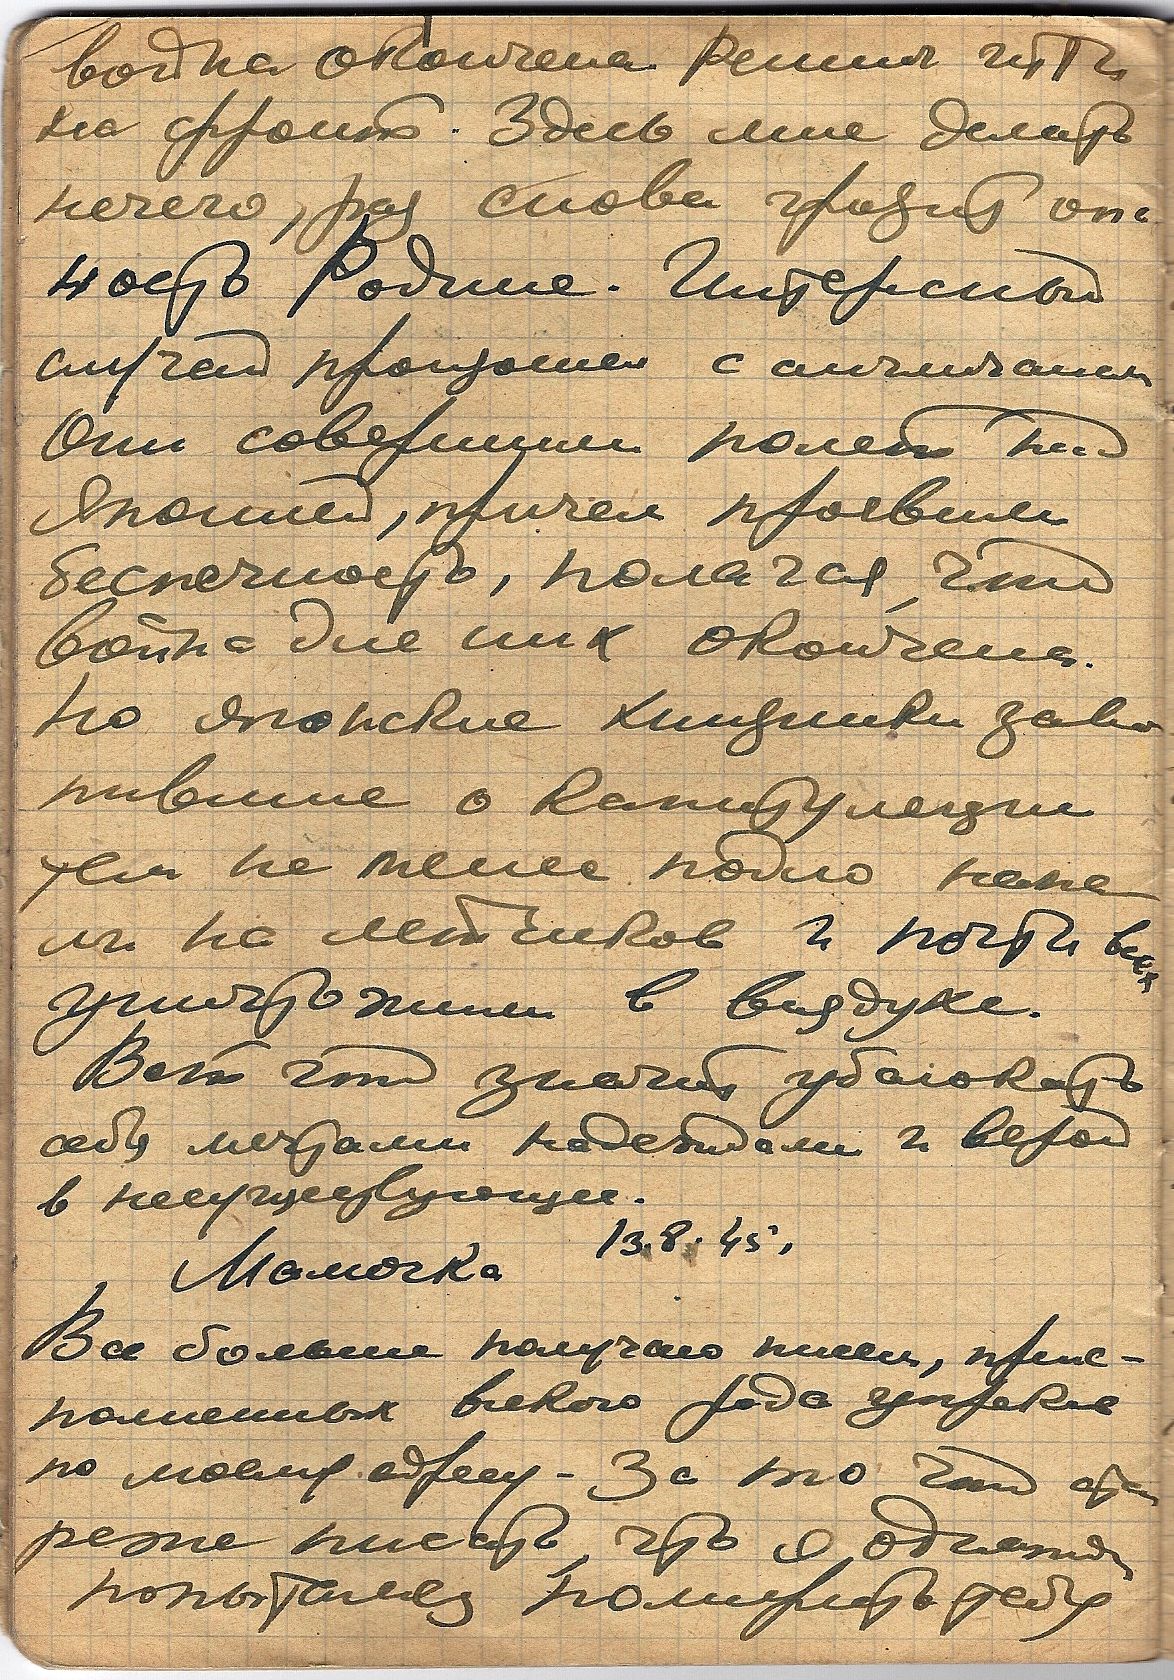 война окончена. Решил итти
на фронт. Здесь мне делать
нечего, раз снова грозит опас
ность Родине. Интересный
случай произошел с англичанами
Они совершили полет над
Японией, причем проявили
беспечность, полагая, что
война для них окончена.
Но японские хищники завο
пившие о капитуляции
тем не менее подло напа
ли на летчиков и почти всех
уничтожили в воздухе.
Вот что значит убаюкать
себя мечтами надеждами и верой
в несуществующее.
13.8.45.
Мамочка
Все больше получаю писем, преис-
полненных всякого рода упреков
по моему адресу - За то что стал
реже писать, что я однажды
попытался помирить тебя